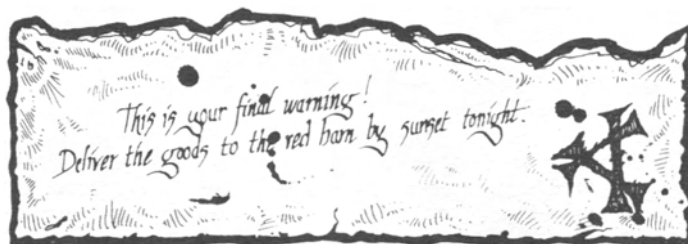 This is your final warning!
Deliver the goods to the red barn by sunset tonight.